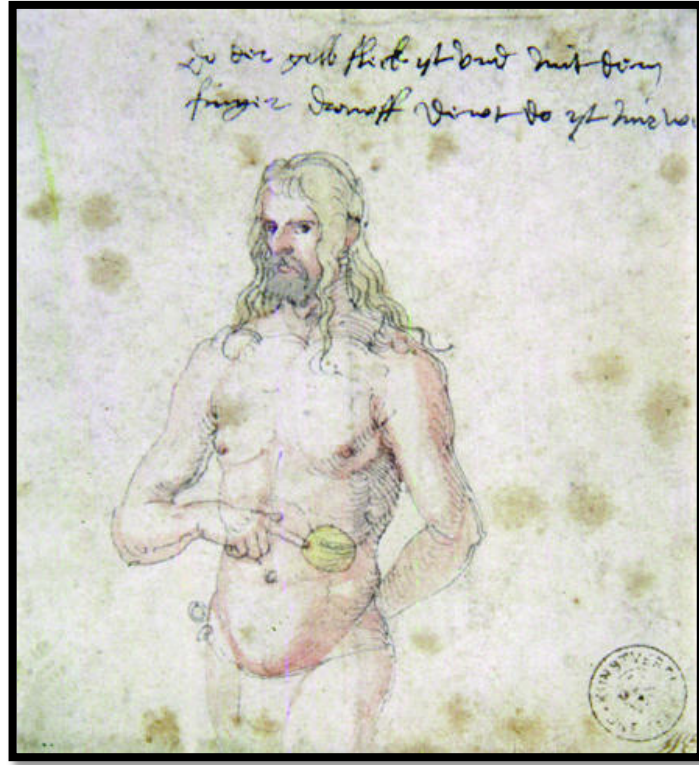 Do der gelb fleck yst vnd mit dem
finger drawff dewt do yst mir w
KUNSTVER